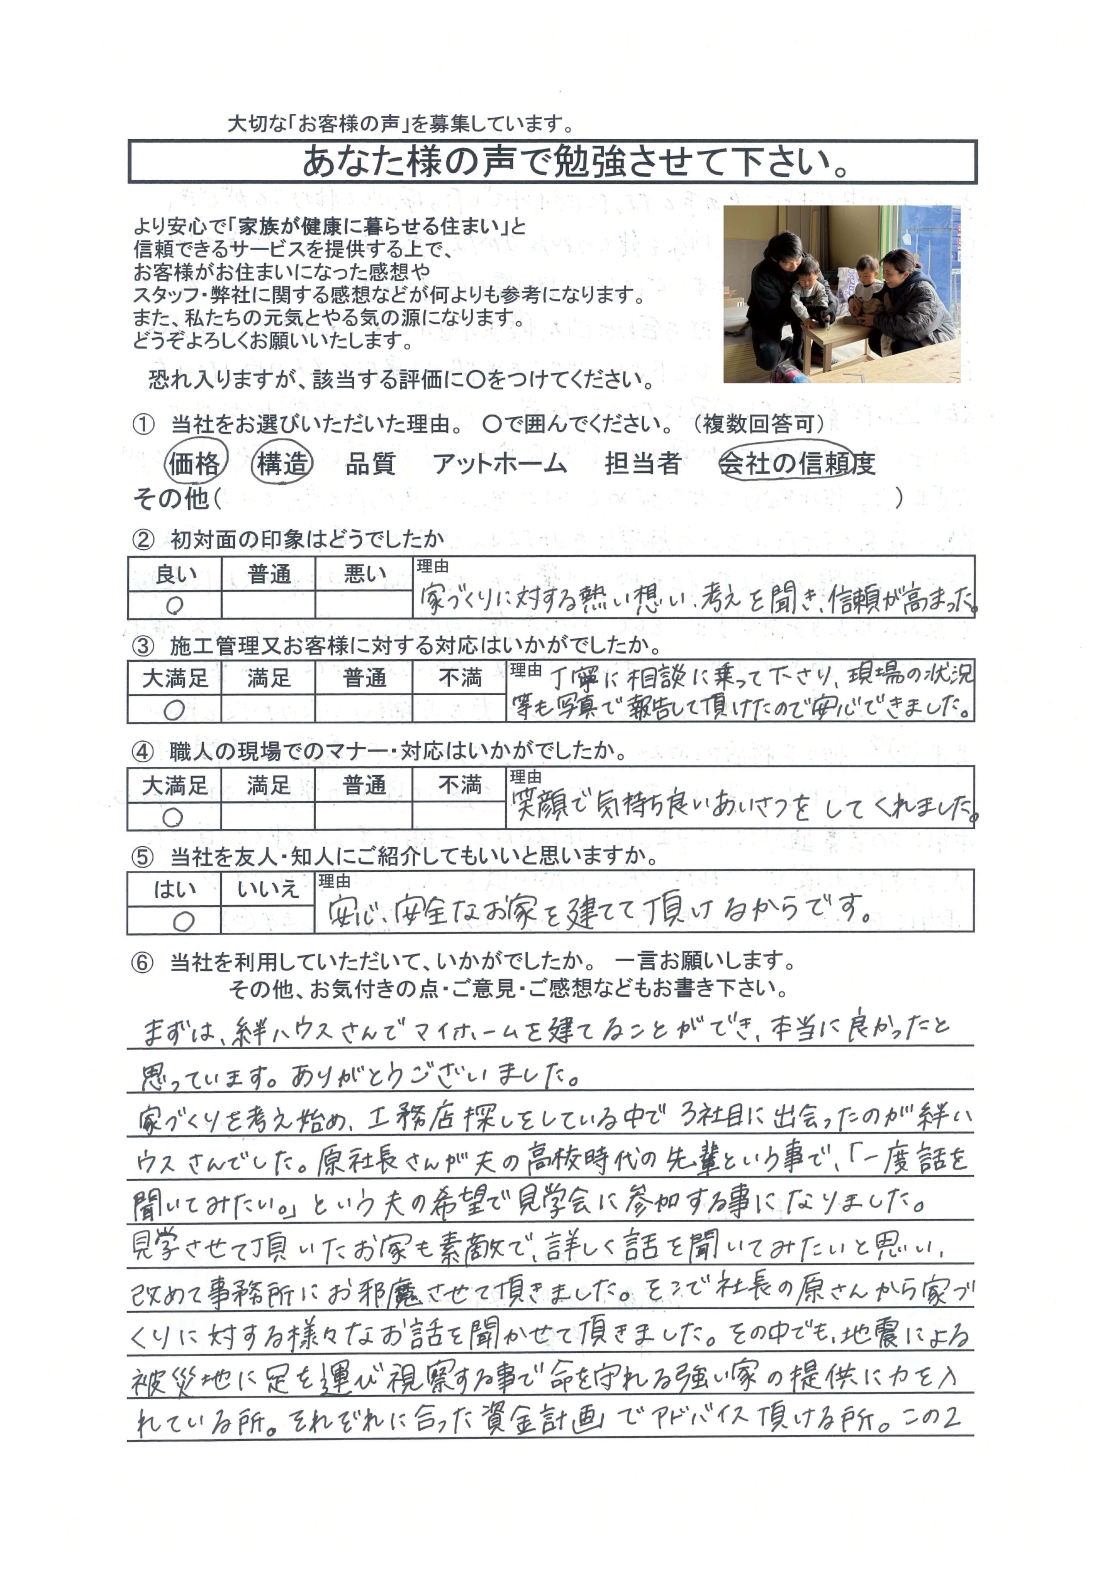 大切な「お客様の声」を募集しています。
あなた様の声で勉強させて下さい。
より安心で「家族が健康に暮らせる住まい」と
信頼できるサービスを提供する上で、
お客様がお住まいになった感想や
スタッフ・弊社に関する感想などが何よりも参考になります。
また、私たちの元気とやる気の源になります。
どうぞよろしくお願いいたします。
恐れ入りますが、該当する評価に〇をつけてください。
① 当社をお選びいただいた理由。 〇で囲んでください。 （複数回答可）
価格 構造 品質 アットホーム 担当者 会社の信頼度
その他（ ）
② 初対面の印象はどうでしたか
良い 普通 悪い 理由
〇 家づくりに対する熱い想い、考えを聞き、信頼が高まった。
③ 施工管理又お客様に対する対応はいかがでしたか。
大満足 満足 普通 不満 理由 丁寧に相談に乗って下さり、現場の状況
〇 等も写真で報告して頂けたので安心できました。
④ 職人の現場でのマナー・対応はいかがでしたか。
大満足 満足 普通 不満 理由
〇 笑顔で気持ち良いあいさつをしてくれました。
⑤ 当社を友人・知人にご紹介してもいいと思いますか。
はい いいえ 理由
〇 安心、安全なお家を建てて頂けるからです。
⑥ 当社を利用していただいて、いかがでしたか。 一言お願いします。
その他、お気付きの点・ご意見・ご感想などもお書き下さい。
まずは、絆ハウスさんでマイホームを建てることができ、本当に良かったと
思っています。ありがとうございました。
家づくりを考え始め、工務店探しをしている中で3社目に出会ったのが絆ハ
ウスさんでした。原社長さんが夫の高校時代の先輩という事で、「一度話を
聞いてみたい。」という夫の希望で見学会に参加する事になりました。
見学させて頂いたお家も素敵で、詳しく話を聞いてみたいと思い、
改めて事務所にお邪魔させて頂きました。そこで社長の原さんから家づ
くりに対する様々なお話を聞かせて頂きました。その中でも、地震による
被災地に足を運び視察する事で命を守れる強い家の提供に力を入
れている所。それぞれに合った資金計画でアドバイス頂ける所。この2